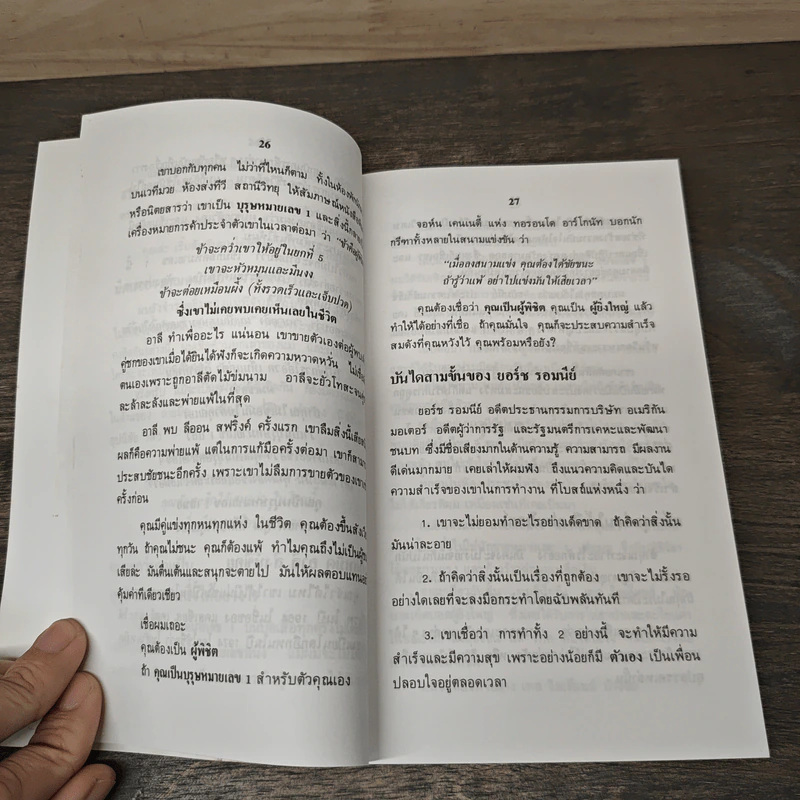 26
เขาบอกกับทุกคน ไม่ว่าที่ไหนก็ตาม ทั้งในห้อง
บนเวทีมวย ห้องส่งทีวี สถานีวิทยุ ให้สัมภาษณ์หนังสือ
หรือนิตยสารว่า เขาเป็น บุรุษหมายเลข 1 และสิ่งนี้
เครื่องหมายการค้าประจำตัวเขาในเวลาต่อมา ว่า
ข้าจะคว่ำเขาให้อยู่ในยกที่ 5
เขาจะหัวหมุนและมึนงง
ข้าจะต่อยเหมือนผึ้ง (ทั้งรวดเร็วและเจ็บปวด)
ซึ่งเขาไม่เคยพบเคยเห็นเลยในชีวิต
อาลี ทำเพื่ออะไร แน่นอน เขาขายตัวเองต่อ
คู่ชกของเขาเมื่อได้ยินได้ฟังก็จะเกิดความหวาดหวั่น
ตนเองเพราะถูกอาลีตัดไม้ข่มนาม อาลีจะยั่วโทสะจน
ละล้าละลังและพ่ายแพ้ในที่สุด
อาลี พบ ลีออน สฟริ้งค์ ครั้งแรก เขาลืมสิ่งนี้
ผลก็คือความพ่ายแพ้ แต่ในการแก้มือครั้งต่อมา เขาก็
ประสบชัยชนะอีกครั้ง เพราะเขาไม่ลืมการขายตัวของเขา
ครั้งก่อน
คุณมีคู่แข่งทุกหนทุกแห่ง ในชีวิต คุณต้องขึ้นสังเวียน
ทุกวัน ถ้าคุณไม่ชนะ คุณก็ต้องแพ้ ทำไมคุณถึงไม่เป็น
เสียล่ะ มันตื่นเต้นและสนุกจะตายไป มันให้ผลตอบแทน
คุ้มค่าทีเดียวเชียว
เชื่อผมเถอะ
คุณต้องเป็น ผู้พิชิต
ถ้า คุณเป็นบุรุษหมายเลข 1 สำหรับตัวคุณเอง
27
จอห์น เคนเนตี้ แห่ง ทอร์อนโต อาร์โกนัท บอกนัก
กรีฑาทั้งหลายในสนามแข่งขัน ว่า
“เมื่อลงสนามแข่ง คุณต้องได้ชัยชนะ
ถ้ารู้ว่าแพ้ อย่าไปแข่งมันให้เสียเวลา”
คุณต้องเชื่อว่า คุณเป็นผู้พิชิต คุณเป็น ผู้ยิ่งใหญ่ แล้ว
ทำให้ได้อย่างที่เชื่อ ถ้าคุณมั่นใจ คุณก็จะประสบความสำเร็จ
สมดังที่คุณหวังไว้ คุณพร้อมหรือยัง?
บันไดสามขั้นของ ยอร์ช รอมนีย์
ยอร์ช รอมนีย์ อดีตประธานกรรมการบริษัท อเมริกัน
มอเตอร์ อดีตผู้ว่าการรัฐ และรัฐมนตรีการเคหะและพัฒนา
ชนบท ซึ่งมีชื่อเสียงมากในด้านความรู้ ความสามารถ มีผลงาน
ดีเด่นมากมาย เคยเล่าให้ผมฟัง ถึงแนวความคิดและบันได
ความสำเร็จของเขาในการทำงาน ที่โบสถ์แห่งหนึ่ง ว่า
1. เขาจะไม่ยอมทำอะไรอย่างเด็ดขาด ถ้าคิดว่าสิ่งนั้น
มันน่าละอาย
2. ถ้าคิดว่าสิ่งนั้นเป็นเรื่องที่ถูกต้อง เขาจะไม่รั้งรอ
อย่างใดเลยที่จะลงมือกระทำโดยฉับพลันทันที
3. เขาเชื่อว่า การทำทั้ง 2 อย่างนี้ จะทำให้มีความ
สำเร็จและมีความสุข เพราะอย่างน้อยก็มี ตัวเอง เป็นเพื่อน
ปลอบใจอยู่ตลอดเวลา